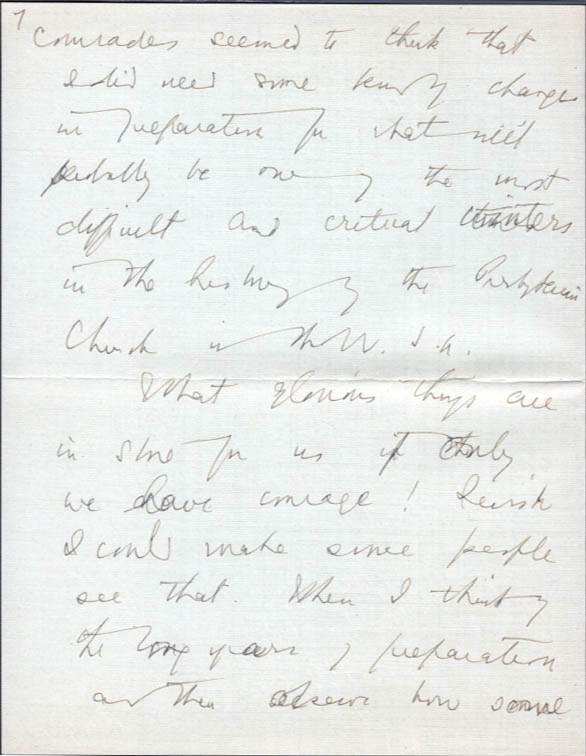 7
Comrades seemed to think that
I did need some kind of change
in preparation for what will
probably be one of the most
difficult and critical winters
in the history of the Presbyterian
Church in the U. S. A.
What glorious things are
in store for us if only
we have courage! I wish
I could make some people
see that. When I think of
the long years of preparation
and then observe how some